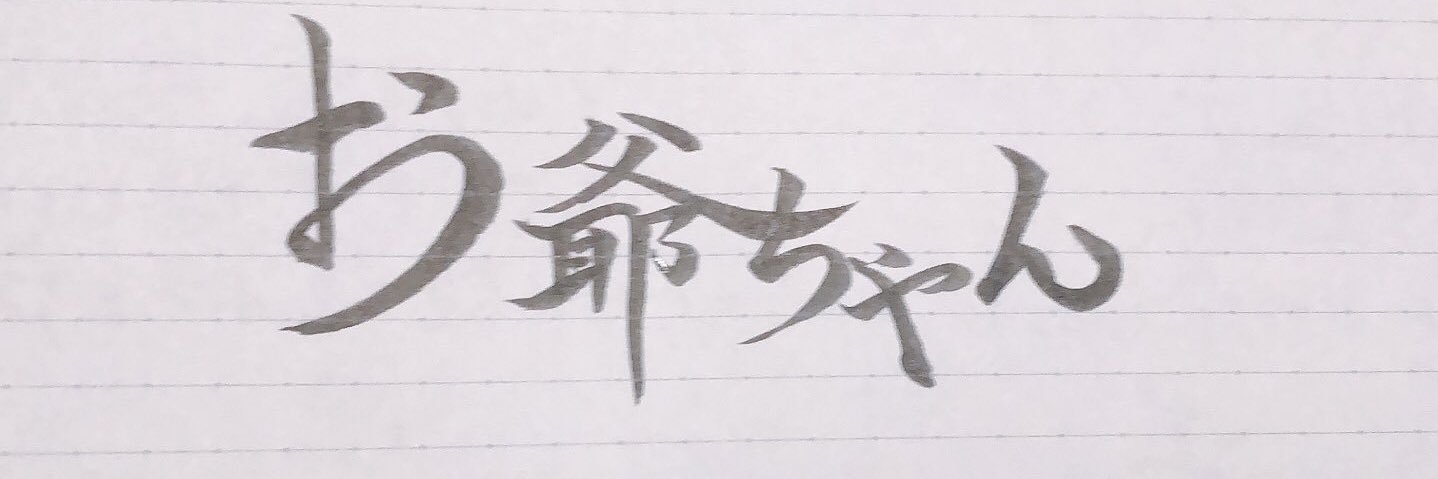 お爺ちゃん